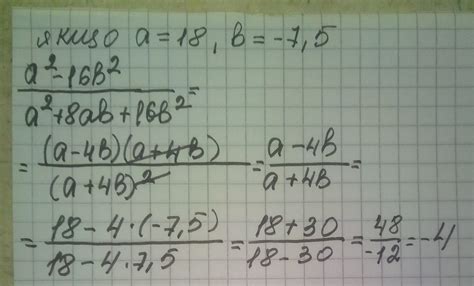 якщо a=18, b=-7,5
a²-16b²
a²+8ab+16b² =
= (a-4b)(a+4b) / (a+4b)² = a-4b / a+4b =
= 18-4·(-7,5) / 18-4·7,5 = 18+30 / 18-30 = 48 / -12 = -4